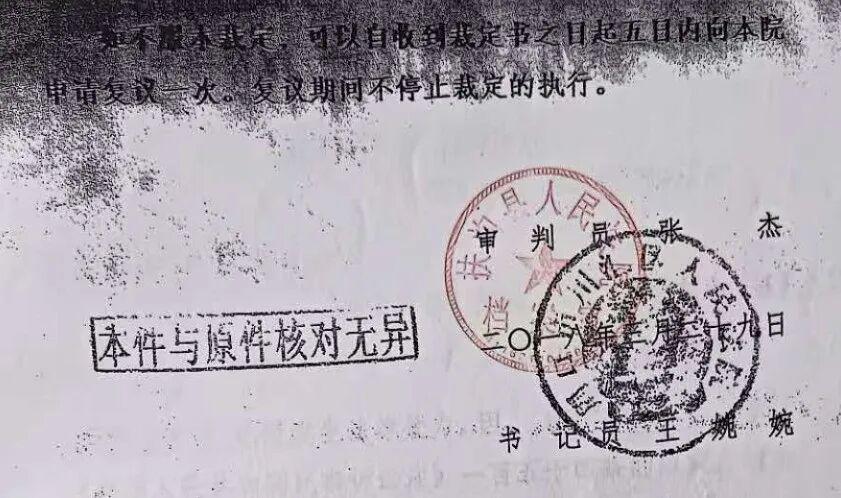 如不服本裁定，可以自收到裁定书之日起五日内向本院
申请复议一次。复议期间不停止裁定的执行。
扶沟县人民
档
审 判 员 张 杰
川 区人民法院
本件与原件核对无异
二〇一八年三月二十九日
书 记 员 王 婉 婉